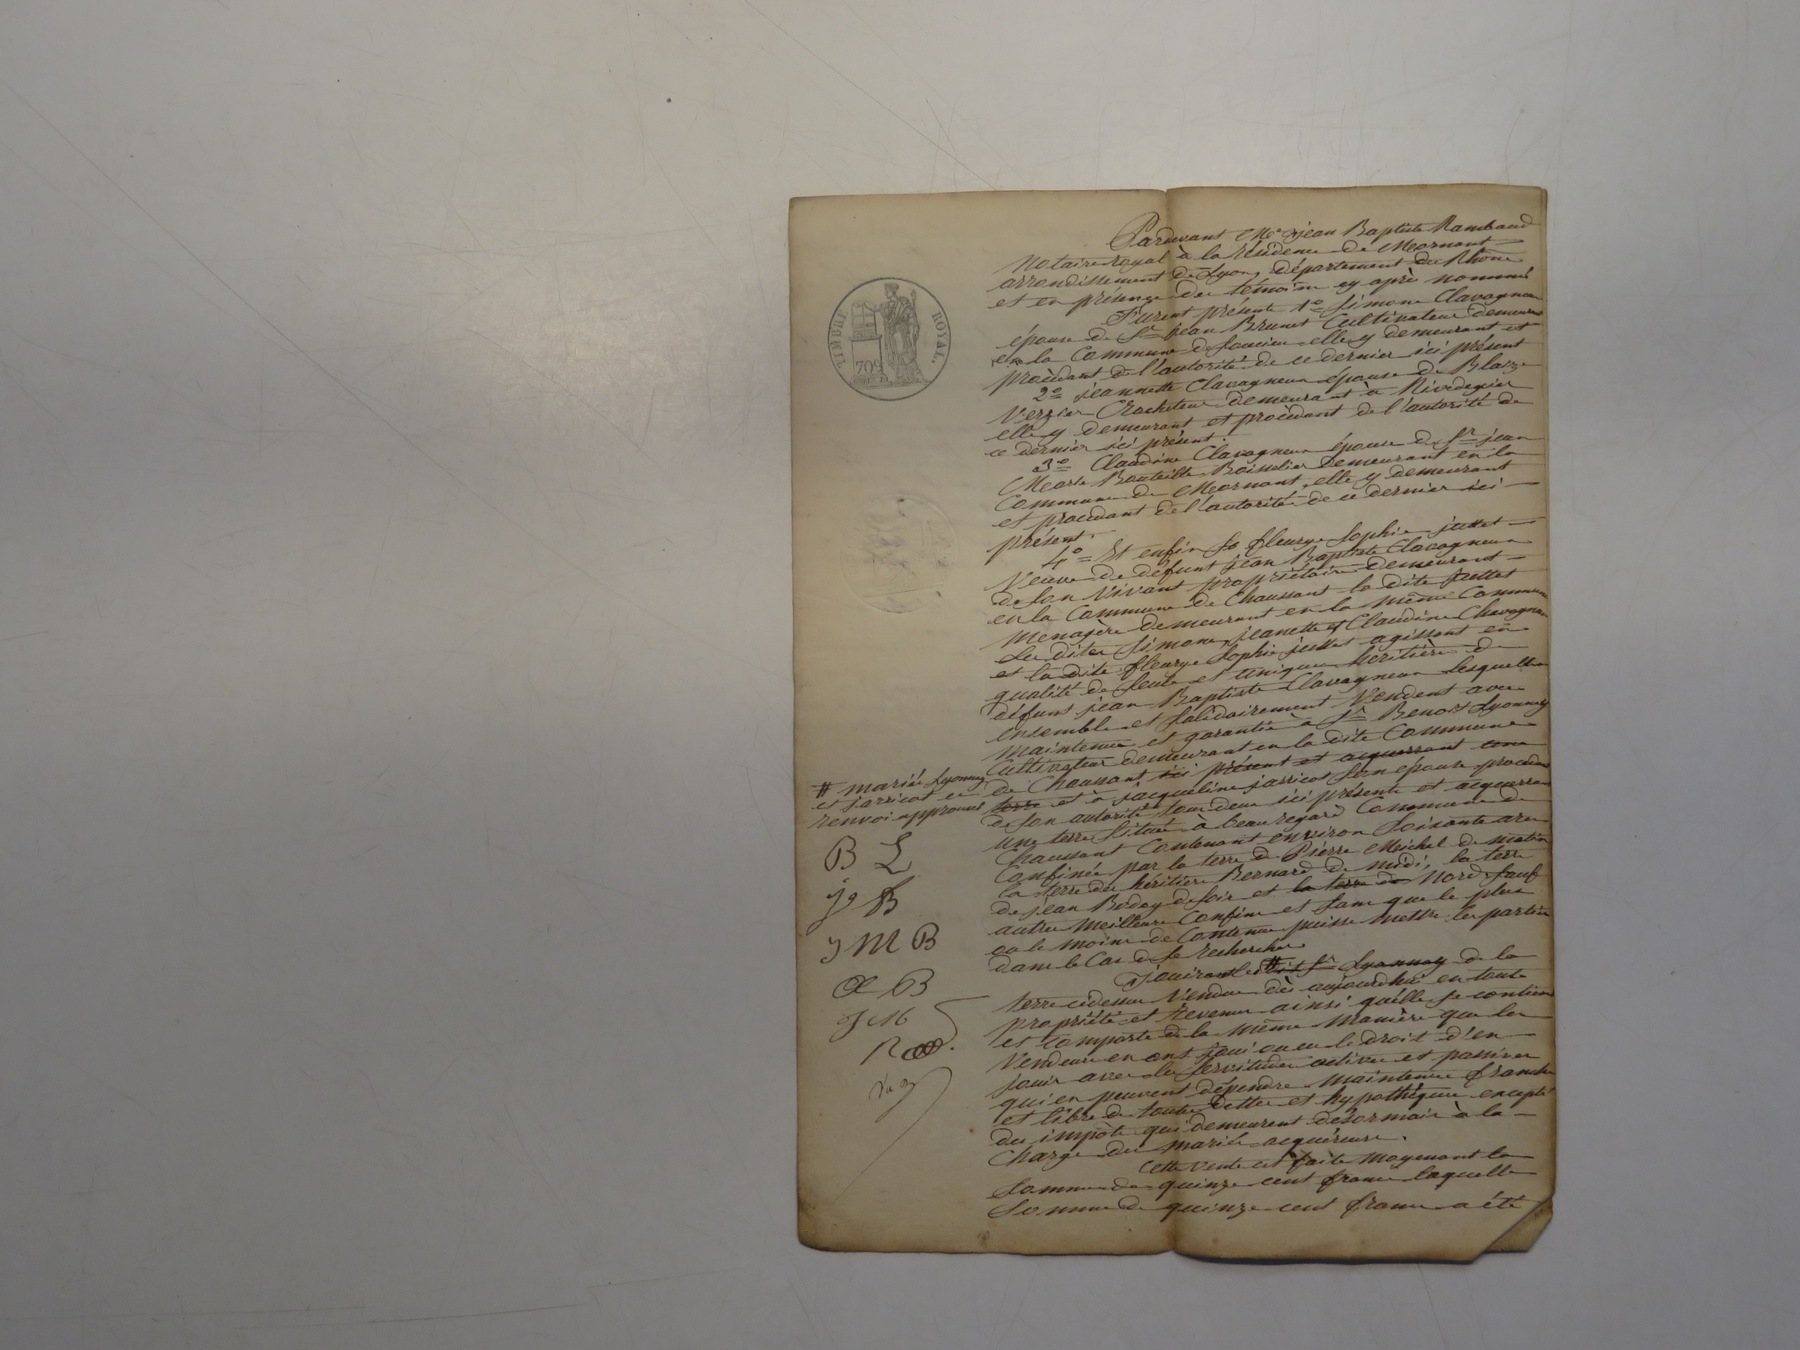 TIMBRE ROYAL.
709
Pardevant Me jean Baptiste Rambaud
Notaire royal à la résidence de Mornant
arrondissement de Lyon, département du Rhône
et en présence des témoins cy après nommés
Furent présents 1o Simone Clavagneux
épouse de Sr jean Brunet Cultivateur demeurant
en la Commune de Soucieu elle y demeurant et
procédant de l'autorité de ce dernier ici présent
2o jeannette Clavagneux épouse de Blaize
Verzier Crocheteur demeurant à Rivedegier
elle y demeurant et procédant de l'autorité de
ce dernier ici présent.
3o Claudine Clavagneux épouse de Sr jean
Marie Bouteille Boisselier demeurant en la
Commune de Mornant, elle y demeurant
et procédant de l'autorité de ce dernier ici
présent.
4o Et enfin Fleurye Sophie jullet
Veuve de défunt jean Baptiste Clavagneux
de son Vivant propriétaire demeurant
en la Commune de Chaussant la dite jullet
Menagère demeurant en la même Commune
les dites Simone, jeanette et Claudine Clavagneux
et la dite fleurye Sophie jullet agissant en
qualité de seules et uniques héritières de
défunt jean Baptiste Clavagneux lesquelles
ensemble et solidairement Vendent avec
Maintenue et garantie à Sr Benoit Lyonnay
Cultivateur demeurant en la dite Commune
de Chaussant ici présent et acquerrant une
terre et à jacqueline jarricot son épouse procédant
de son autorité tous deux ici présents et acquerrant
une terre Située à beauregard Commune de
Chaussant Contenant environ Soixante ares
Confinée par la terre de Pierre Michel de matin
la terre des héritiers Bernard de midi, la terre
de jean Bodoy de soir et la terre de Nord, sauf
autres meilleurs Confins et sans que le plus
ou le moins de Contenue puisse mettre les parties
dans le Cas de se rechercher.
Jouiront les # dit Sr Lyonnay de la
terre cidessus Vendue dès aujourdhui en toute
propriété et revenus ainsi quelle se contient
et comporte de la même Manière que les
Vendeurs en ont joui ou eu le droit d'en
jouir avec les servitudes actives et passives
qui en peuvent dépendre Maintenue franche
et libre de toutes dettes et hypothèques excepté
des impôts qui demeurent désormais à la
Charge des mariés acquéreurs.
Cette vente est faite moyenant la
Somme de quinze cent francs laquelle
Somme de quinze cent francs a été
# mariés Lyonnay
et jarricot ce
renvoi approuvé
B L
jo B
J M B
B
J M
R